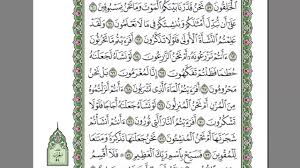 ٱلْخَٰلِقُونَ نَحْنُ قَدَّرْنَا بَيْنَكُمُ ٱلْمَوْتَ وَمَا نَحْنُ بِمَسْبُوقِينَ
عَلَىٰٓ أَن نُّبَدِّلَ أَمْثَٰلَكُمْ وَنُنشِئَكُمْ فِى مَا لَا تَعْلَمُونَ وَلَقَدْ
عَلِمْتُمُ ٱلنَّشْأَةَ ٱلْأُولَىٰ فَلَوْلَا تَذَكَّرُونَ أَفَرَءَيْتُم مَّا تَحْرُثُونَ
ءَأَنتُمْ تَزْرَعُونَهُۥٓ أَمْ نَحْنُ ٱلزَّٰرِعُونَ لَوْ نَشَآءُ لَجَعَلْنَٰهُ
حُطَٰمًا فَظَلْتُمْ تَفَكَّهُونَ إِنَّا لَمُغْرَمُونَ بَلْ نَحْنُ
مَحْرُومُونَ أَفَرَءَيْتُمُ ٱلْمَآءَ ٱلَّذِى تَشْرَبُونَ ءَأَنتُمْ أَنزَلْتُمُوهُ
مِنَ ٱلْمُزْنِ أَمْ نَحْنُ ٱلْمُنزِلُونَ لَوْ نَشَآءُ جَعَلْنَٰهُ أُجَاجًا فَلَوْلَا
تَشْكُرُونَ أَفَرَءَيْتُمُ ٱلنَّارَ ٱلَّتِى تُورُونَ ءَأَنتُمْ أَنشَأْتُمْ
شَجَرَتَهَآ أَمْ نَحْنُ ٱلْمُنشِـُٔونَ نَحْنُ جَعَلْنَٰهَا تَذْكِرَةً وَمَتَٰعًا
لِّلْمُقْوِينَ فَسَبِّحْ بِٱسْمِ رَبِّكَ ٱلْعَظِيمِ فَلَآ أُقْسِمُ